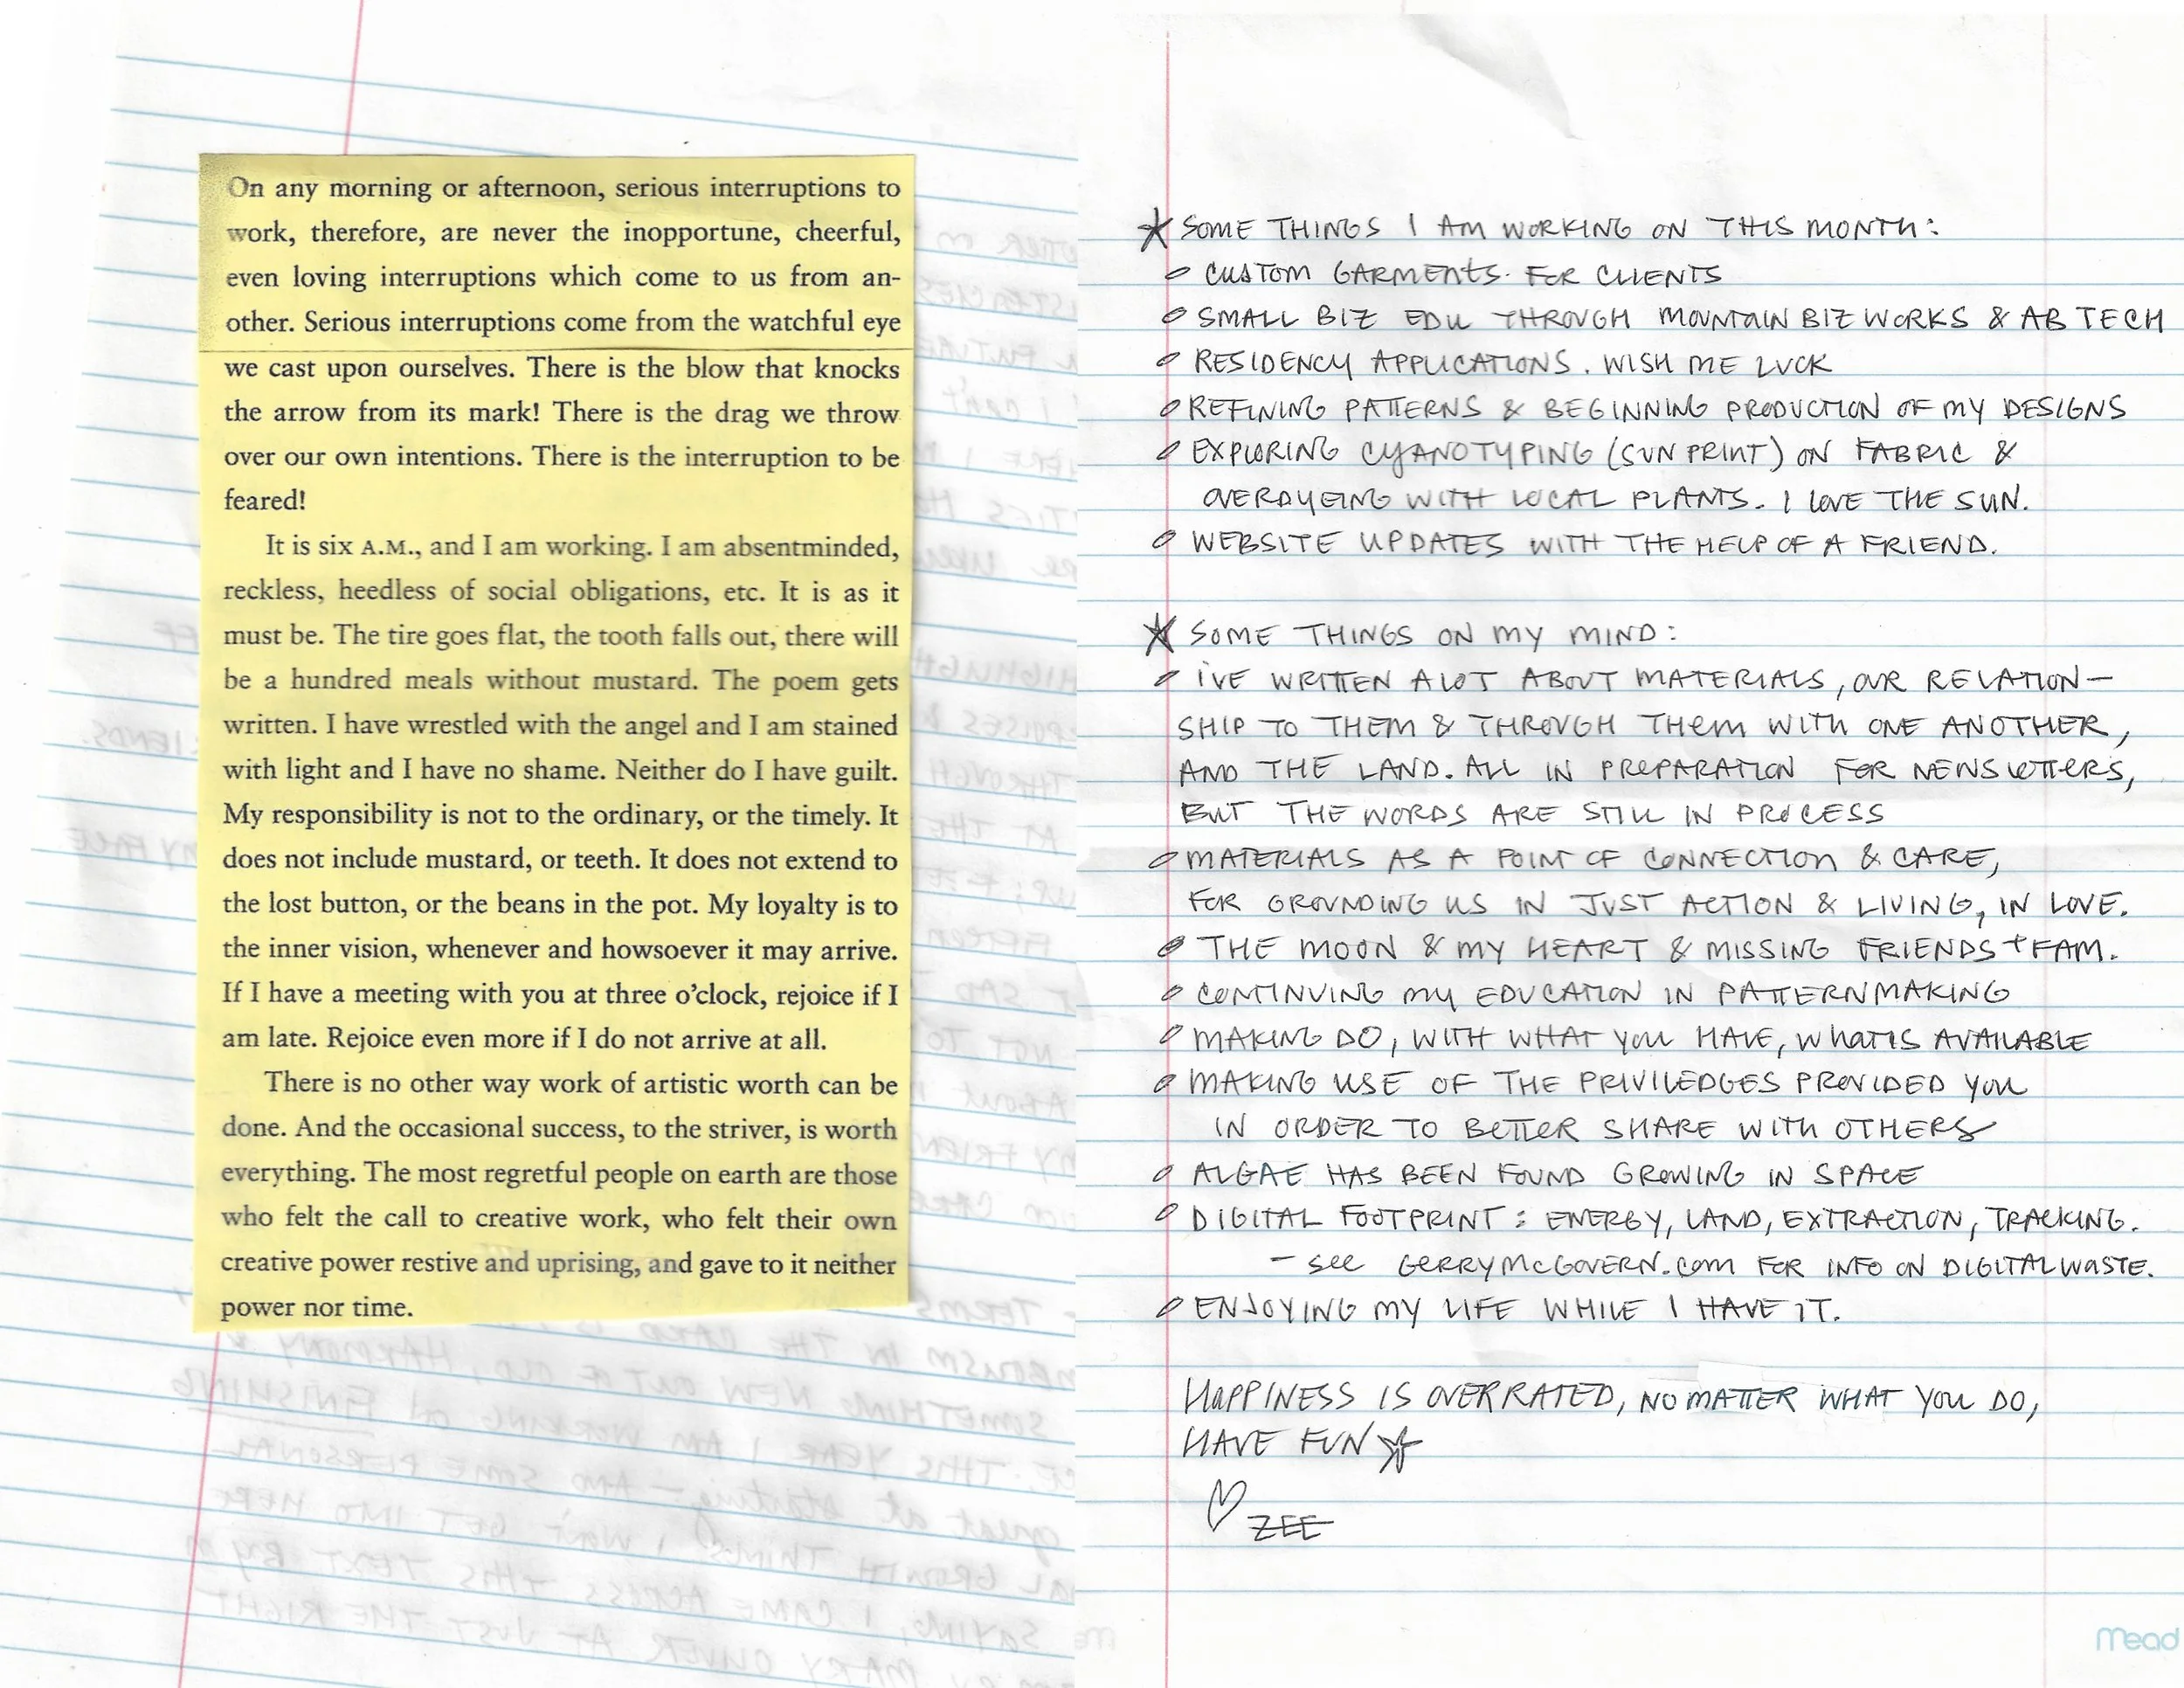 On any morning or afternoon, serious interruptions to
work, therefore, are never the inopportune, cheerful,
even loving interruptions which come to us from an-
other. Serious interruptions come from the watchful eye
we cast upon ourselves. There is the blow that knocks
the arrow from its mark! There is the drag we throw
over our own intentions. There is the interruption to be
feared!
It is six A.M., and I am working. I am absentminded,
reckless, heedless of social obligations, etc. It is as it
must be. The tire goes flat, the tooth falls out, there will
be a hundred meals without mustard. The poem gets
written. I have wrestled with the angel and I am stained
with light and I have no shame. Neither do I have guilt.
My responsibility is not to the ordinary, or the timely. It
does not include mustard, or teeth. It does not extend to
the lost button, or the beans in the pot. My loyalty is to
the inner vision, whenever and howsoever it may arrive.
If I have a meeting with you at three o'clock, rejoice if I
am late. Rejoice even more if I do not arrive at all.
There is no other way work of artistic worth can be
done. And the occasional success, to the striver, is worth
everything. The most regretful people on earth are those
who felt the call to creative work, who felt their own
creative power restive and uprising, and gave to it neither
power nor time.
SOME THINGS I AM WORKING ON THIS MONTH:
CUSTOM GARMENTS. FOR CLIENTS
SMALL BIZ EDU THROUGH MOUNTAIN BIZ WORKS & AB TECH
RESIDENCY APPLICATIONS. WISH ME LUCK
REFINING PATTERNS & BEGINNING PRODUCTION OF MY DESIGNS
EXPLORING CYANOTYPING (SUN PRINT) ON FABRIC &
OVERDYEING WITH LOCAL PLANTS. I LOVE THE SUN.
WEBSITE UPDATES WITH THE HELP OF A FRIEND.
SOME THINGS ON MY MIND:
I'VE WRITTEN A LOT ABOUT MATERIALS, OUR RELATION-
SHIP TO THEM & THROUGH THEM WITH ONE ANOTHER,
AND THE LAND. ALL IN PREPARATION FOR NEWSLETTERS,
BUT THE WORDS ARE STILL IN PROCESS
MATERIALS AS A POINT OF CONNECTION & CARE,
FOR GROUNDING US IN JUST ACTION & LIVING, IN LOVE.
THE MOON & MY HEART & MISSING FRIENDS + FAM.
CONTINUING MY EDUCATION IN PATTERNMAKING
MAKING DO, WITH WHAT YOU HAVE, WHAT IS AVAILABLE
MAKING USE OF THE PRIVILEDGES PROVIDED YOU
IN ORDER TO BETTER SHARE WITH OTHERS
ALGAE HAS BEEN FOUND GROWING IN SPACE
DIGITAL FOOTPRINT: ENERGY, LAND, EXTRACTION, TRACKING.
- SEE GERRYMCGOVERN.COM FOR INFO ON DIGITAL WASTE.
ENJOYING MY LIFE WHILE I HAVE IT.
HAPPINESS IS OVERRATED, NO MATTER WHAT YOU DO,
HAVE FUN
ZEE
Mead